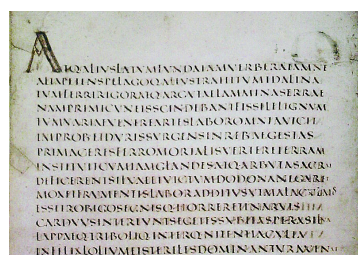 ATQALIVSLATVMFVNDAIAMVERBERATAMNE
ALTAPETENSPELAGOQALIVSTRAHITVMIDALINA
TVMFERRIRIGORATQARGVTAELAMMINASERRAE
NAMPRIMICVNEISSCINDEBANTFISSILELIGNVM
TVMVARIAEVENEREARTESLABOROMNIAVICIT
IMPROBVSETDVRISVRGENSINREBVSEGESTAS
PRIMACERESFERROMORTALISVERTERETERRAM
INSTITVITCVMIAMGLANDESATQARBVTASACRAE
DEFICERENTSILVAEETVICTVMDODONANEGARET
MOXETFRVMENTISLABORADDITVSVTMALACVLMOS
ESSETROBIGOSEGNISQHORRERETINARVIS
CARDVVSINTEREVNTSEGETESSVBITASPERASILVA
LAPPAEQTRIBOLIQINTERQNITENTIACVLTA
INFELIXLOLIVMETSTERILESDOMINANTVRAVENAE